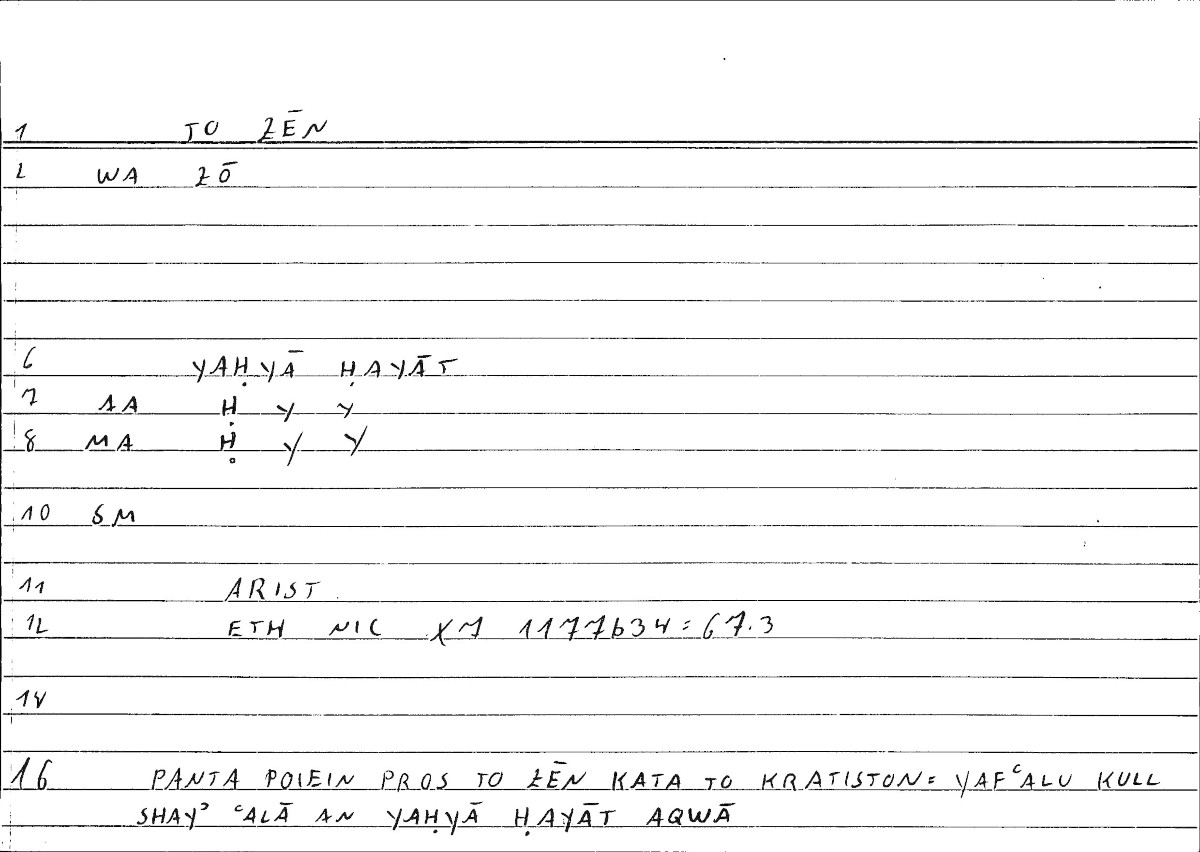 1 TO ZĒN
2 WA ZŌ
6 YAḤYĀ ḤAYĀT
7 AA Ḥ Y Y
8 MA Ḥ Y Y
10 SM
11 ARIST
12 ETH NIC X7 1177b34=67.3
14
16 PANTA POIEIN PROS TO ZĒN KATA TO KRATISTON= YAFʿALU KULL
SHAYʾ ʿALĀ AN YAḤYĀ ḤAYĀT AQWĀ